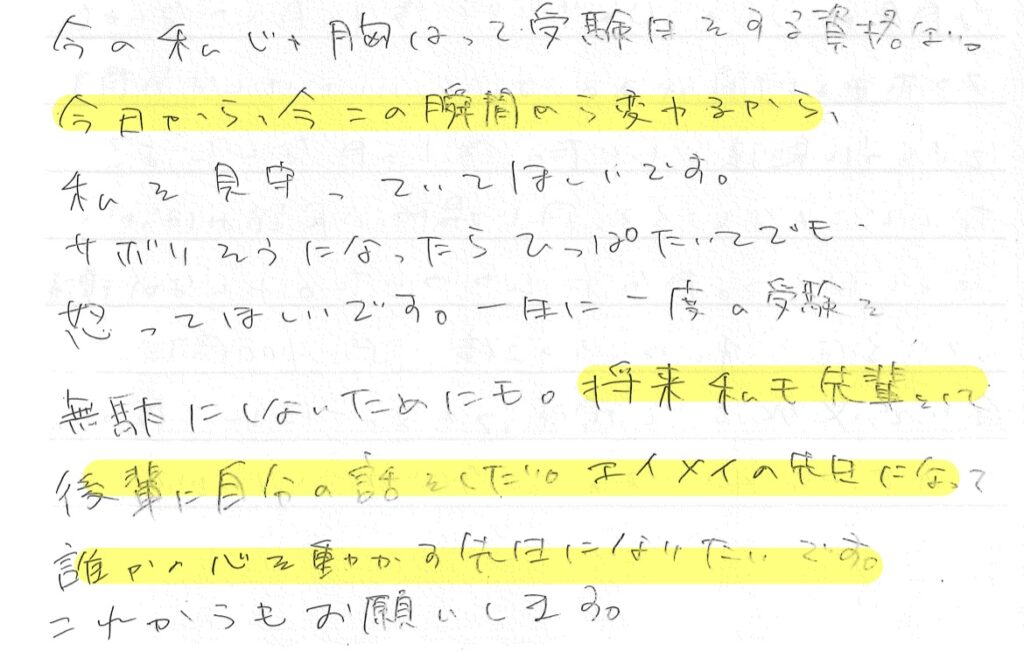 今の私じゃ胸はって受験はをする資格ない。
今日から、今この瞬間から変わるから、
私を見守っていてほしいです。
サボりそうになったらひっぱたいてでも
怒ってほしいです。一生に一度の受験を
無駄にしないためにも。将来私も先輩として
後輩に自分の話をしたい。エイメイの先生になって
誰かの心を動かす先生になりたいです。
これからもお願いします。